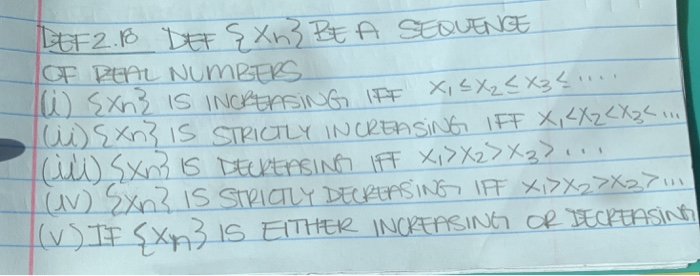 DEF 2.18 DEF {Xn} BE A SEQUENCE
OF REAL NUMBERS
(i) {Xn} IS INCREASING IFF X₁≤X₂≤X₃≤.....
(ii) {Xn} IS STRICTLY INCREASING IFF X₁<X₂<X₃<...
(iii) {Xn} IS DECREASING IFF X₁>X₂>X₃>...
(iv) {Xn} IS STRICTLY DECREASING IFF X₁>X₂>X₃>...
(v) IF {Xn} IS EITHER INCREASING OR DECREASING